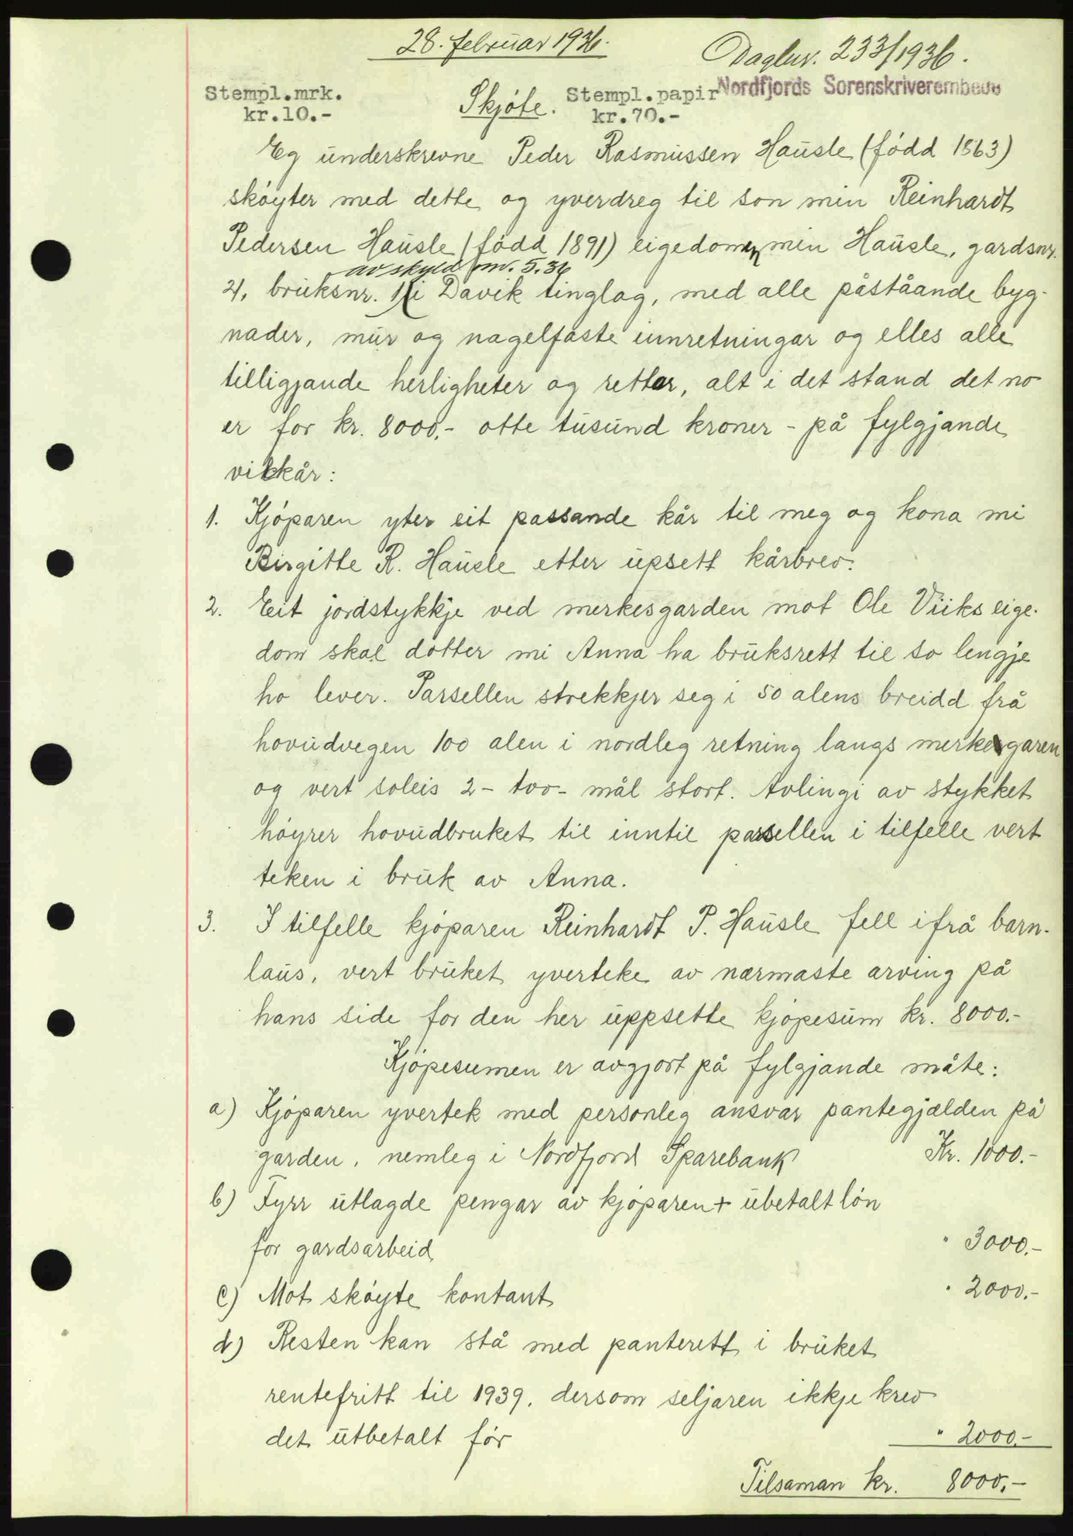 28. februar 1936.
Dagbnr. 233/1936.
Nordfjords Sorenskriverembede
Stempl.mrk.
kr.10.-
Skjøte.
Stempl.papir
kr.70.-
Eg underskrevne Peder Rasmussen Hausle (fødd 1863)
skøyter med dette og yverdreg til son min Reinhardt
Pedersen Hausle (fødd 1891) eigedomen min Hausle, gardsnr.
av skyld m. 5.36
21, bruksnr. 1, i Davik tinglag, med alle påståande byg-
nader, mur og nagelfaste innretningar og elles alle
tilligjande herligheter og retter, alt i det stand det no
er for kr. 8000,- otte tusund kroner - på fylgjande
vilkår:
1. Kjøparen yter eit passande kår til meg og kona mi
Birgitte R. Hausle etter upsett kårbrev.
2. Eit jordstykkje ved merkesgarden mot Ole Viiks eige-
dom skal dotter mi Anna ha bruksrett til so lengje
ho lever. Parsellen strekkjer seg i 50 alens breidd frå
hovudvegen 100 alen i nordleg retning langs merkesgaren
og vert soleis 2 - tvo - mål stort. Avlingi av stykket
høyrer hovudbruket til inntil parsellen i tilfelle vert
teken i bruk av Anna.
3. I tilfelle kjøparen Reinhardt P. Hausle fell ifrå barn-
laus, vert bruket yverteke av nærmaste arving på
hans side for den her uppsette kjøpesum kr. 8000.-
Kjøpesumen er avgjort på fylgjande måte:
a) Kjøparen yvertek med personleg ansvar pantegjælden på
garden, nemleg i Nordfjord Sparebank Kr. 1000.-
b) Fyrr utlagde pengar av kjøparen + ubetalt løn
for gardsarbeid " 3000.-
c) Mot skøyte kontant " 2000.-
d) Resten kan stå med panterett i bruket
rentefritt til 1939, dersom seljaren ikkje krev
det utbetalt før " 2000.-
Tilsaman kr. 8000.-